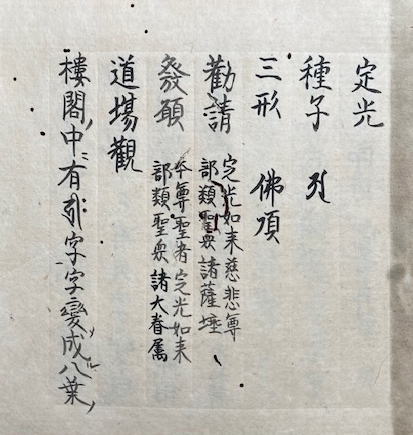 定光
種子
三形 佛頂
勸請 定光如来慈悲尊
部類聖衆諸薩埵
發願 本尊聖者定光如来
部類聖衆諸大眷属
道場觀
樓閣中有字字變成八葉